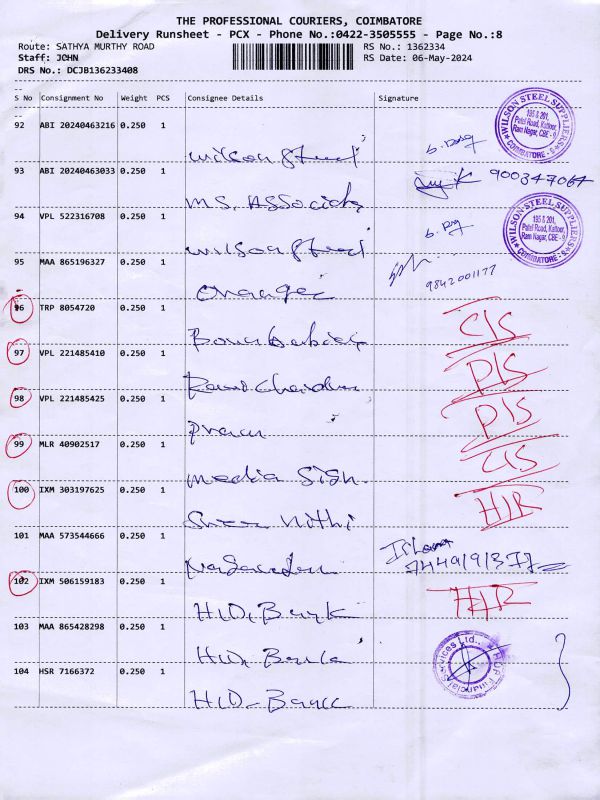 THE PROFESSIONAL COURIERS, COIMBATORE
Delivery Runsheet - PCX - Phone No.:0422-3505555 - Page No.:8
Route: SATHYA MURTHY ROAD RS No.: 1362334
Staff: JOHN RS Date: 06-May-2024
DRS No.: DCJB136233408
S No Consignment No Weight PCS Consignee Details Signature
92 ABI 20240463216 0.250 1
WILSON STEEL SUPPLIERS
195 & 201,
Patel Road, Kattoor,
Ram Nagar, CBE - 9
COIMBATORE - 9
Wilson Steel
93 ABI 20240463033 0.250 1
900347067
M.S. Associate
94 VPL 522316708 0.250 1
WILSON STEEL SUPPLIERS
195 & 201,
Patel Road, Kattoor,
Ram Nagar, CBE - 9
COIMBATORE - 9
Wilson Steel
95 MAA 865196327 0.250 1
9842001177
Orange
96 TRP 8054720 0.250 1
C/S
97 VPL 221485410 0.250 1
P/S
98 VPL 221485425 0.250 1
P/S
99 MLR 40902517 0.250 1
C/S
Media Sign
100 IXM 303197625 0.250 1
H/R
Sree Nithi
101 MAA 573544666 0.250 1
102 IXM 506159183 0.250 1
H/R
H.D. Bank
103 MAA 865428298 0.250 1
Financial Services Ltd.,
H.D. Bank
104 HSR 7166372 0.250 1
H.D. Bank